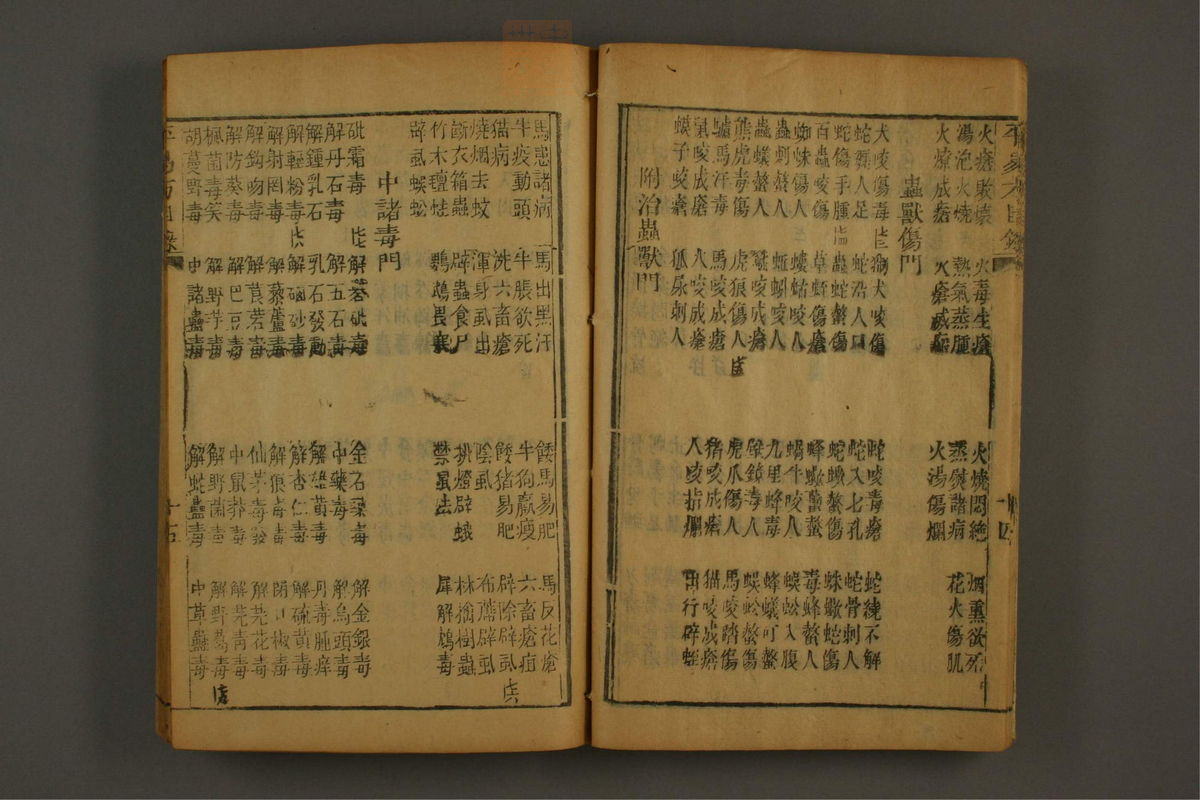 火瘡敗壞 火毒生瘡 火燒悶絶 烟熏欲死
湯泡火燒 熱氣蒸腫 蒸㷟諸病 花火傷肌
火燎成瘡 火瘡滅瘢 火湯傷爛
蟲獸傷門
犬咬傷毒 猘犬咬傷 蛇咬毒瘡 蛇纏不解
蛇纒人足 蛇沿人口 蛇入七孔 蛇骨刺人
蛇傷手腫 蛇螫傷 蛇蠍螫傷 蛛蠍蛇傷
百蟲咬傷 草傷瘡 蜂蠍蠚螫 毒蜂螫人
蜘蛛傷人 螻蛄咬人 蝸牛咬人 蜈蚣入腹
蟲刺螫人 蚯蚓咬人 九里蜂毒 蜂蟻叮螫
蟲蟻螫人 咬成瘡 壁鏡毒人 蜈蚣螫傷
熊虎毒傷 虎狼傷人 虎爪傷人 馬咬踏傷
驢馬汗毒 馬咬成瘡 猪咬成瘡 猫咬成瘡
鼠咬成瘡 人咬成瘡 人咬指爛 出行辟蛭
蟆子咬瘡 狐尿刺人
附治蟲獸門
馬患諸病 馬出黑汗 餧馬易肥 馬反花瘡
牛疫動頭 牛脹欲死 牛狗羸瘦 六畜瘡疽
猫病 洗六畜瘡 餧猪易肥 辟除辟虱
燒烟去蚊 渾身虱出 陰虱 布薦辟虱
斷衣箱蟲 辟蟲食尸 挑燈辟蛾 林檎樹蟲
竹木蛀 鷄鴆畏 禁虱法 犀解鴆毒
辟虱蜈蚣
中諸毒門
砒霜毒 解蓉砒毒 金石藥毒 解金銀毒
解丹石毒 解五石毒 中藥毒 解烏頭毒
解鍾乳石 乳石發動 解雄黃毒 丹毒腫痒
解輕粉毒 解硇砂毒 解杏仁毒 解硫黃毒
解射罔毒 解藜蘆毒 解狼毒毒 閉口椒毒
解鈎吻毒 解莨菪毒 仙茅毒發 解芫花毒
解防葵毒 解巴豆毒 中鼠莽毒 解芫青毒
楓菌毒笑 解野芋毒 解野菌毒 解野葛毒
胡蔓野毒 中諸蠱毒 解蛇蠱毒 中草蠱毒